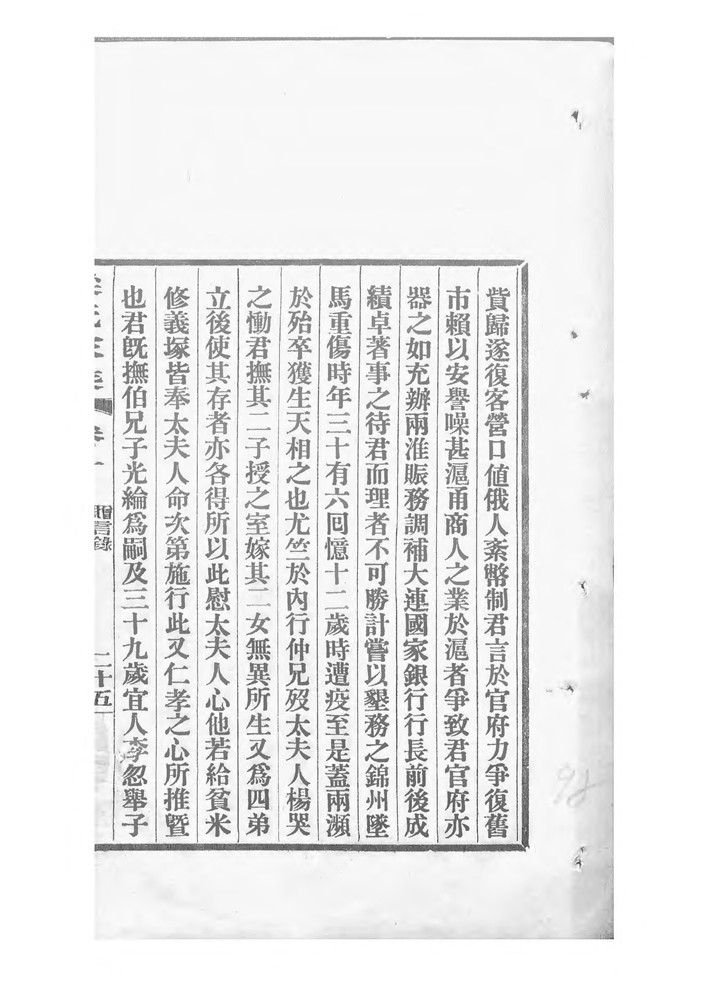 貲歸遂復客營口值俄人紊幣制君言於官府力爭復舊
市賴以安譽噪甚滬甬商人之業於滬者爭致君官府亦
器之如充辦兩淮賑務調補大連國家銀行行長前後成
績卓著事之待君而理者不可勝計嘗以墾務之錦州墜
馬重傷時年三十有六回憶十二歲時遭疫至是蓋兩瀕
於殆卒獲生天相之也尤竺於內行仲兄歿太夫人楊哭
之慟君撫其二子授之室嫁其二女無異所生又爲四弟
立後使其存者亦各得所以此慰太夫人心他若給貧米
修義塚皆奉太夫人命次第施行此又仁孝之心所推曁
也君旣撫伯兄子光綸爲嗣及三十九歲宜人李忽舉子
贈言錄
二十五